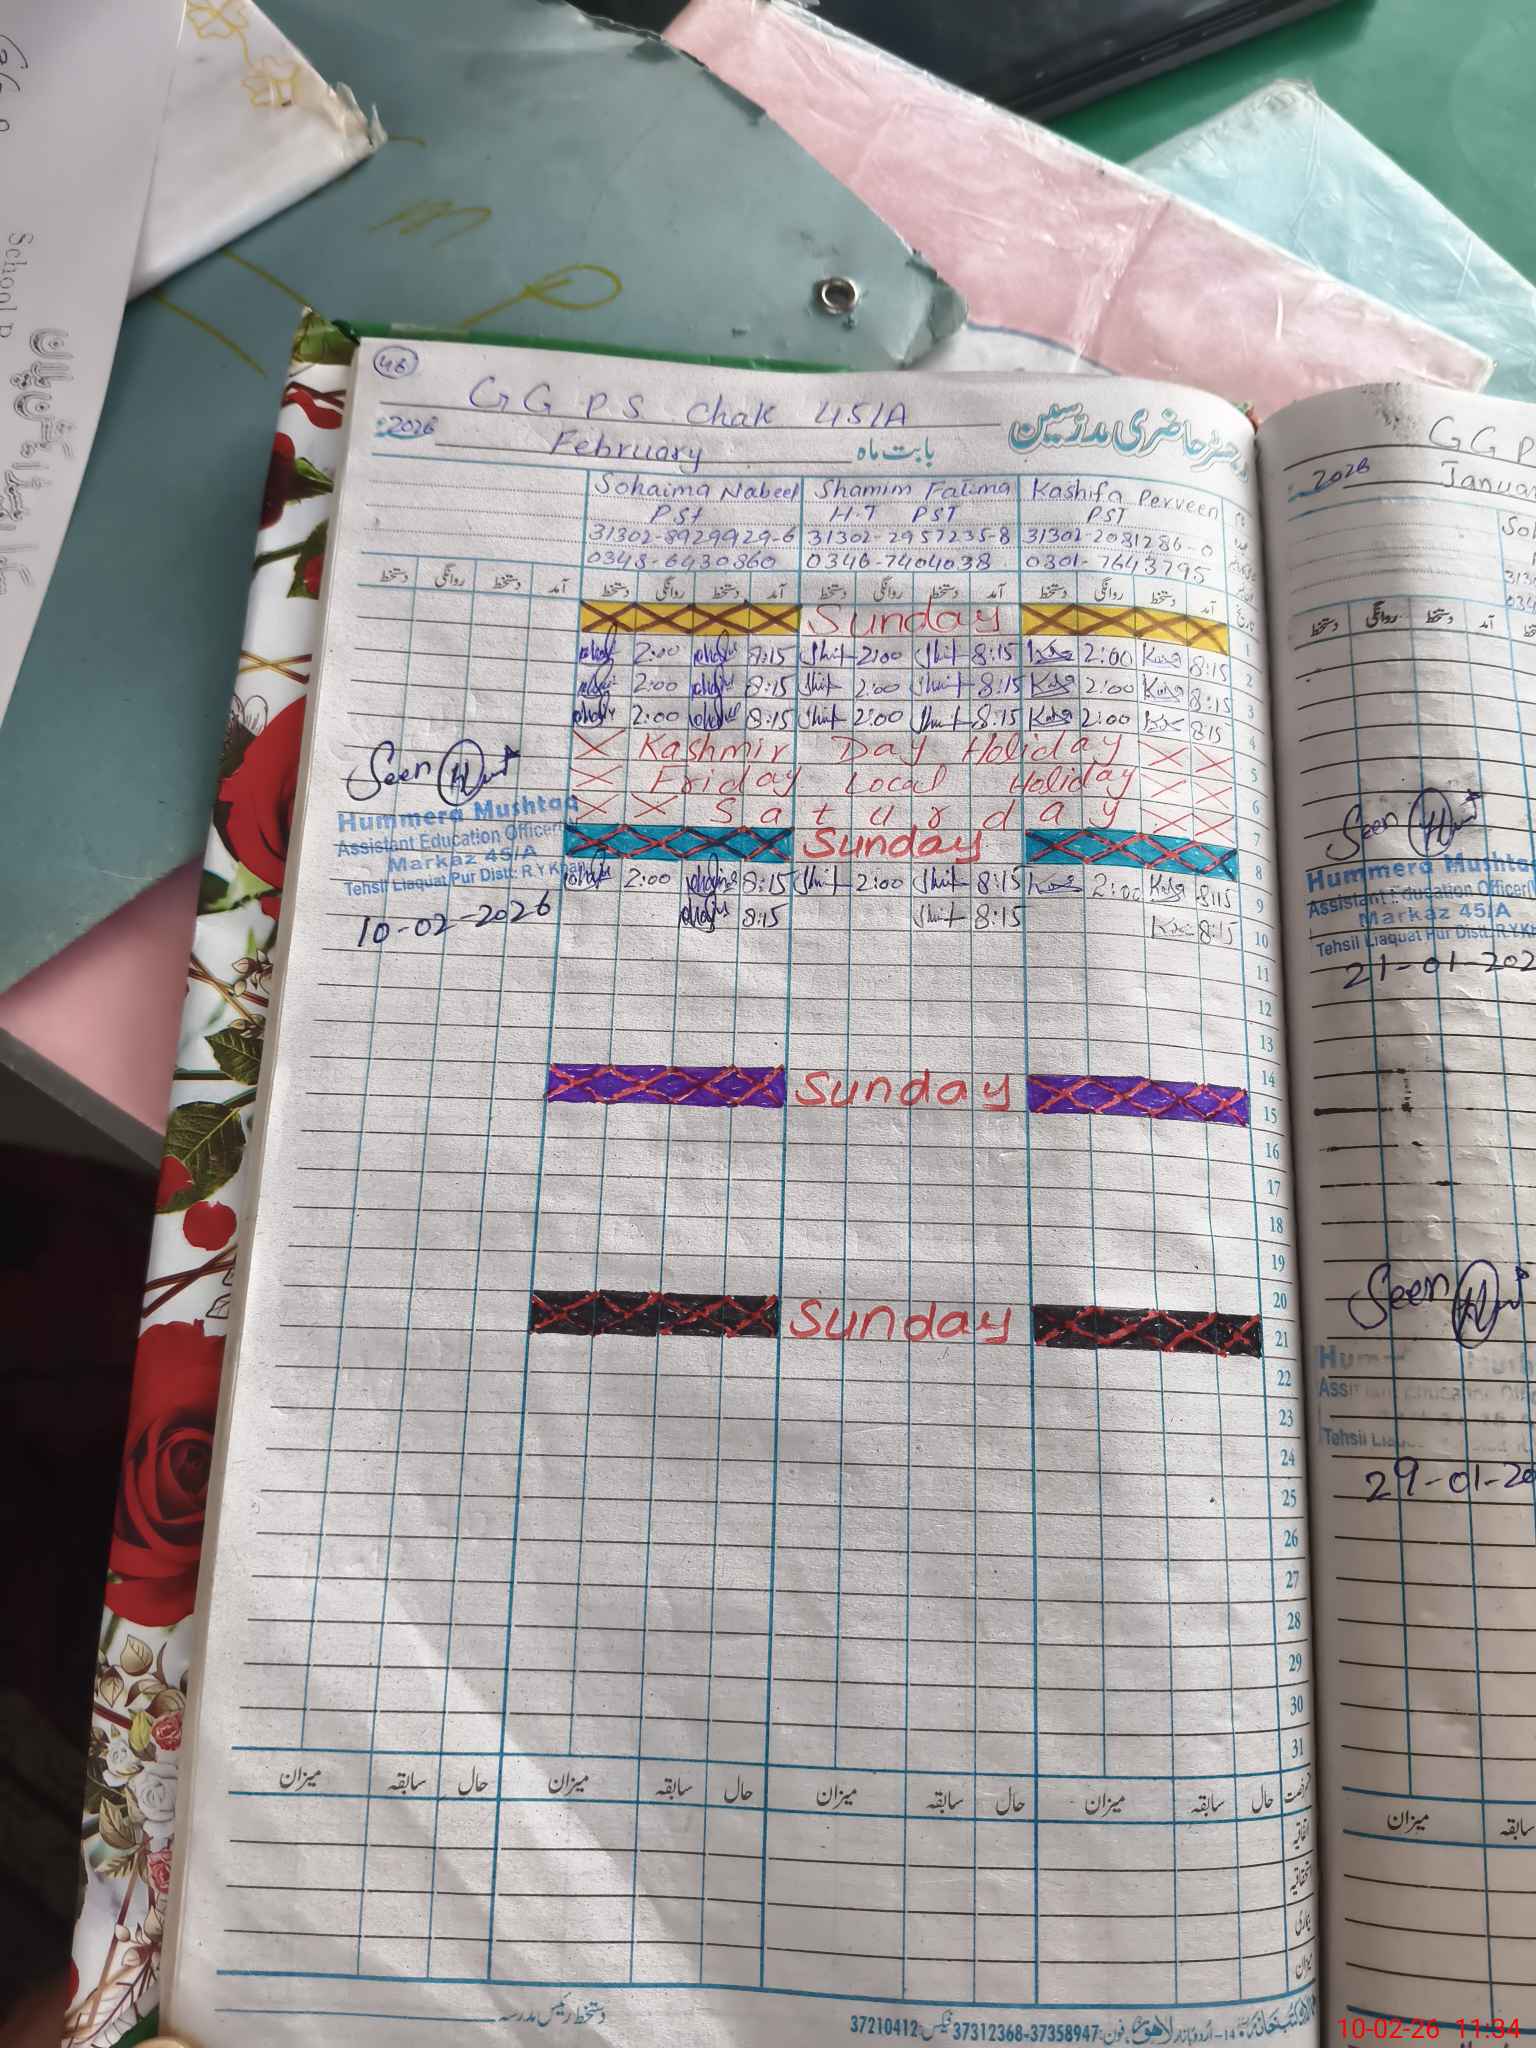 46
GGPS Chak 45/A
رجسٹر حاضری مدرسین
2026 February بابت ماہ
Sohaima Nabeel Shamim Fatima Kashifa Perveen
PST H.T PST PST
31302-8929929-6 31302-2957235-8 31302-2081286-0
0348-6430860 0346-7404038 0301-7643795
دستخط روانگی دستخط آمد دستخط روانگی دستخط آمد دستخط روانگی دستخط آمد دستخط روانگی دستخط آمد تاریخ
Sunday 1
2:00 8:15 2:00 8:15 2:00 8:15 2
2:00 8:15 2:00 8:15 2:00 8:15 3
2:00 8:15 2:00 8:15 2:00 8:15 4
Kashmir Day Holiday 5
Friday Local Holiday 6
Saturday 7
Sunday 8
2:00 8:15 2:00 8:15 2:00 8:15 9
8:15 8:15 8:15 10
Seen
Hummera Mushtaq
Assistant Education Officer
Markaz 45/A
Tehsil Liaquat Pur Distt: R.Y.Khan
10-02-2026
11
12
13
14
Sunday 15
16
17
18
19
20
Sunday 21
22
23
24
25
26
27
28
29
30
31
میزان سابقہ حال میزان سابقہ حال میزان سابقہ حال میزان سابقہ حال
اتفاقیہ
استحقاقیہ
بیماری
میزان
دستخط رئیس مدرسہ
14-اردو بازار لاہور فون: 37312368-37358947 فیکس: 37210412
GGP
2026 Janua
دستخط روانگی دستخط آمد
Seen
Hummera Mushta
Assistant Education Officer
Markaz 45/A
Tehsil Liaquat Pur Distt: R.Y.Kh
21-01-202
Seen
Tehsil
29-01-20
میزان سابقہ
School
10-02-26 11:34